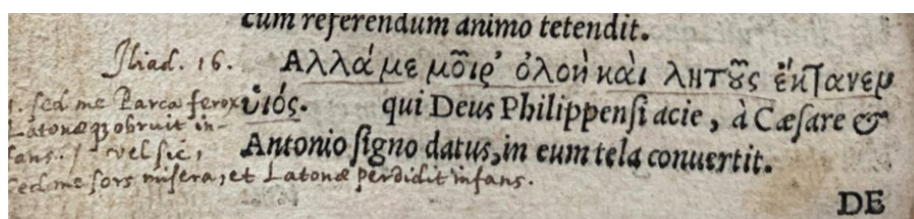 cum referendum animo tetendit.
Iliad. 16.
Αλλά με μοῖρ' ὀλοὴ καὶ λητοῦς ἔκτανεν
ὑιός. qui Deus Philippensi acie, à Cæsare &
Antonio signo datus, in eum tela conuertit.
1. sed me Parca ferox
Latonæq; obruit in-
fans. / vel sic,
sed me sors misera, et Latonæ perdidit infans.
DE